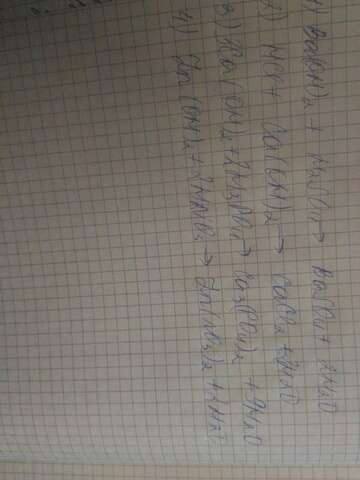 1) Ba(OH)₂ + H₂SO₄ → BaSO₄ + 2H₂O
2) HCl + Ca(OH)₂ → CaCl₂ + 2H₂O
3) Ca(OH)₂ + 2H₃PO₄ → Ca₃(PO₄)₂ + 9H₂O
4) Zn(OH)₂ + 2HNO₃ → Zn(NO₃)₂ + 2H₂O